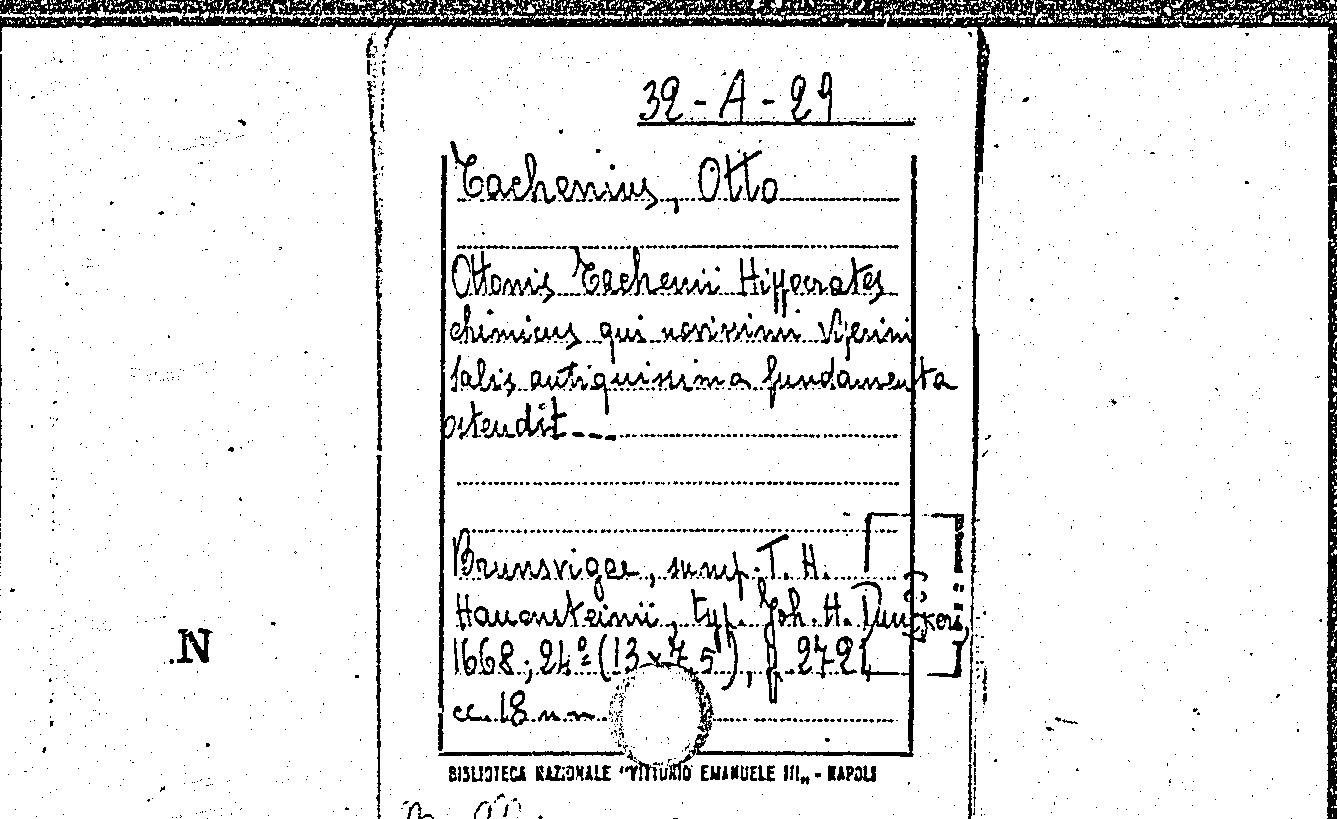 32-A-29
Tachenius, Otto
Ottonis Tachenii Hippocrates
chimicus qui novissimi Viperini
Salis antiquissima fundamenta
ostendit----
Brunsvigae, sump. T. H.
Hauensteinii, typ. Joh. H. Dunckeri,
1668; 24º (13x7,5), p. 272
cc. 18 nn.
.N
BIBLIOTECA NAZIONALE "VITTORIO EMANUELE III„ - NAPOLI